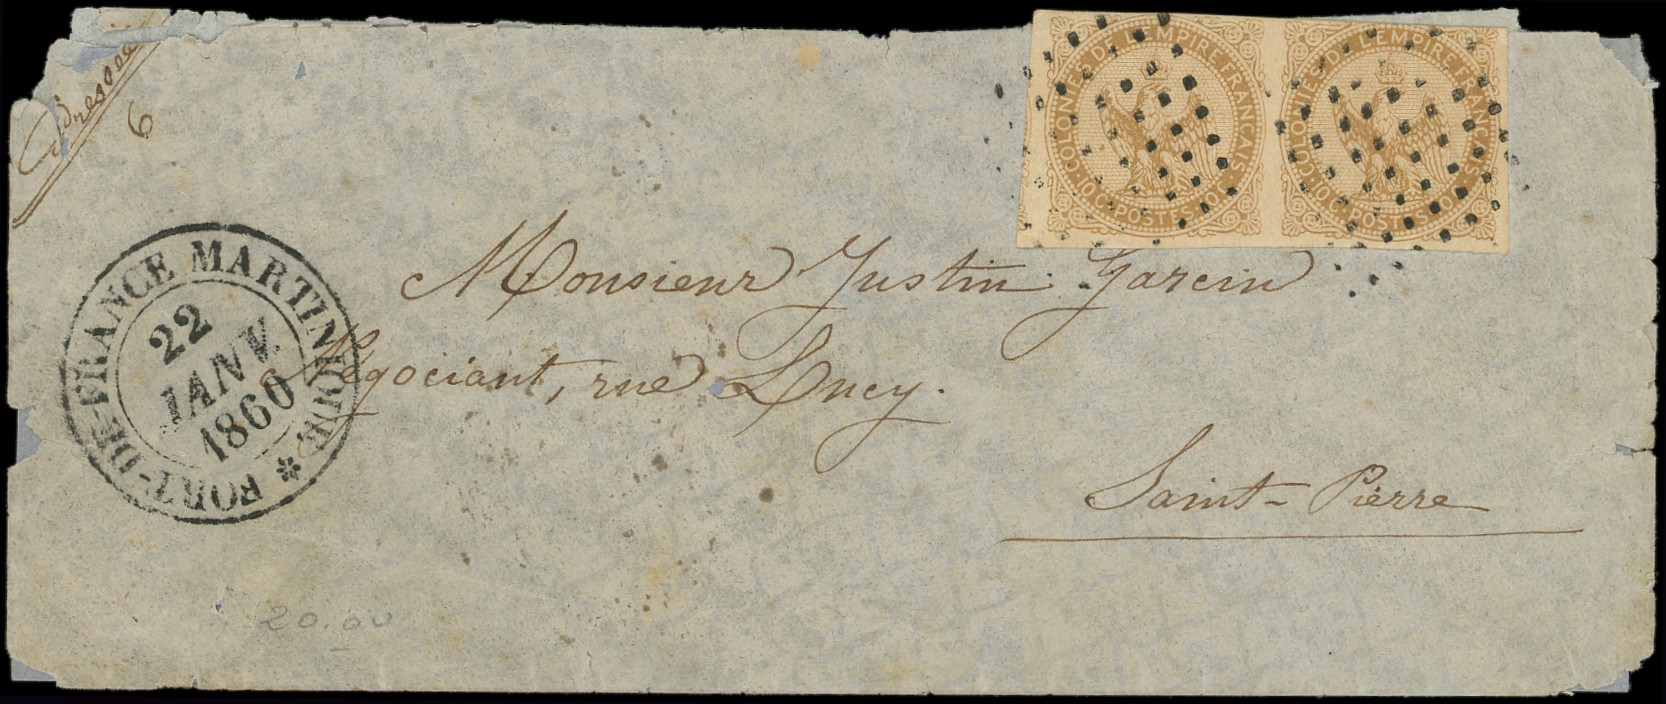 6
COLONIES DE L'EMPIRE FRANÇAIS
10C. POSTES 10C
COLONIES DE L'EMPIRE FRANÇAIS
10C. POSTES 10C
FORT-DE-FRANCE MARTINIQUE
22
JANV.
1860
Monsieur Justin Garcin
Négociant, rue Lucy.
Saint-Pierre